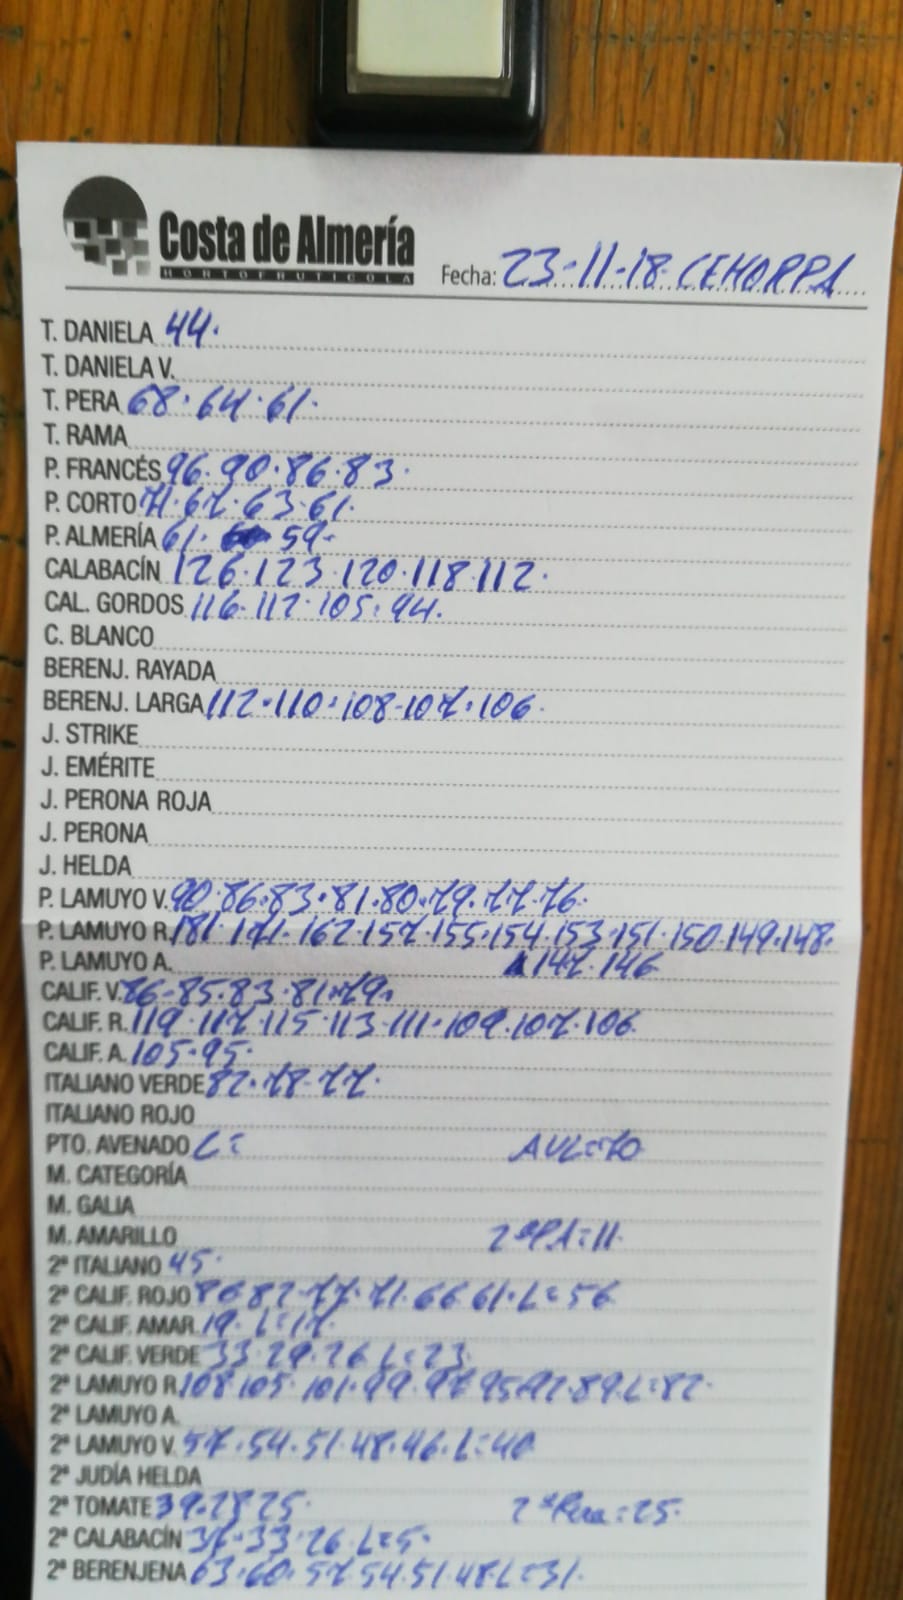 Costa de Almería
HORTOFRUTICOLA
Fecha: 23-11-18 CEHORPA
T. DANIELA 44.
T. DANIELA V.
T. PERA 68.64.61.
T. RAMA
P. FRANCÉS 96.90.86.83.
P. CORTO 71.67.63.61.
P. ALMERÍA 61. 59-
CALABACÍN 126.123.120.118.112.
CAL. GORDOS 116.112.105.94.
C. BLANCO
BERENJ. RAYADA
BERENJ. LARGA 112.110.108.107.106.
J. STRIKE
J. EMÉRITE
J. PERONA ROJA
J. PERONA
J. HELDA
P. LAMUYO V. 90.86.83.81.80.79.77.76.
P. LAMUYO R. 181.171.162.157.155.154.153.151.150.149.148.
P. LAMUYO A. 147.146
CALIF. V. 86-85.83.81.79.
CALIF. R. 119.117.115.113.111.109.107.106
CALIF. A. 105.95.
ITALIANO VERDE 82.78.77.
ITALIANO ROJO
PTO. AVENADO L= AVL=70
M. CATEGORÍA
M. GALIA
M. AMARILLO 2ª PA=11.
2ª ITALIANO 45.
2ª CALIF. ROJO 82.77.71.66.61.L=56
2ª CALIF. AMAR. 19. L=17.
2ª CALIF. VERDE 33.29.26.L=23.
2ª LAMUYO R. 108.105.101.99.97.95.92.89.L=82.
2ª LAMUYO A.
2ª LAMUYO V. 57.54.51.48.46.L=40
2ª JUDÍA HELDA
2ª TOMATE 39.28.25. 2ª Pera=25.
2ª CALABACÍN 33.26.L=5.
2ª BERENJENA 63.60.57.54.51.48.L=31.